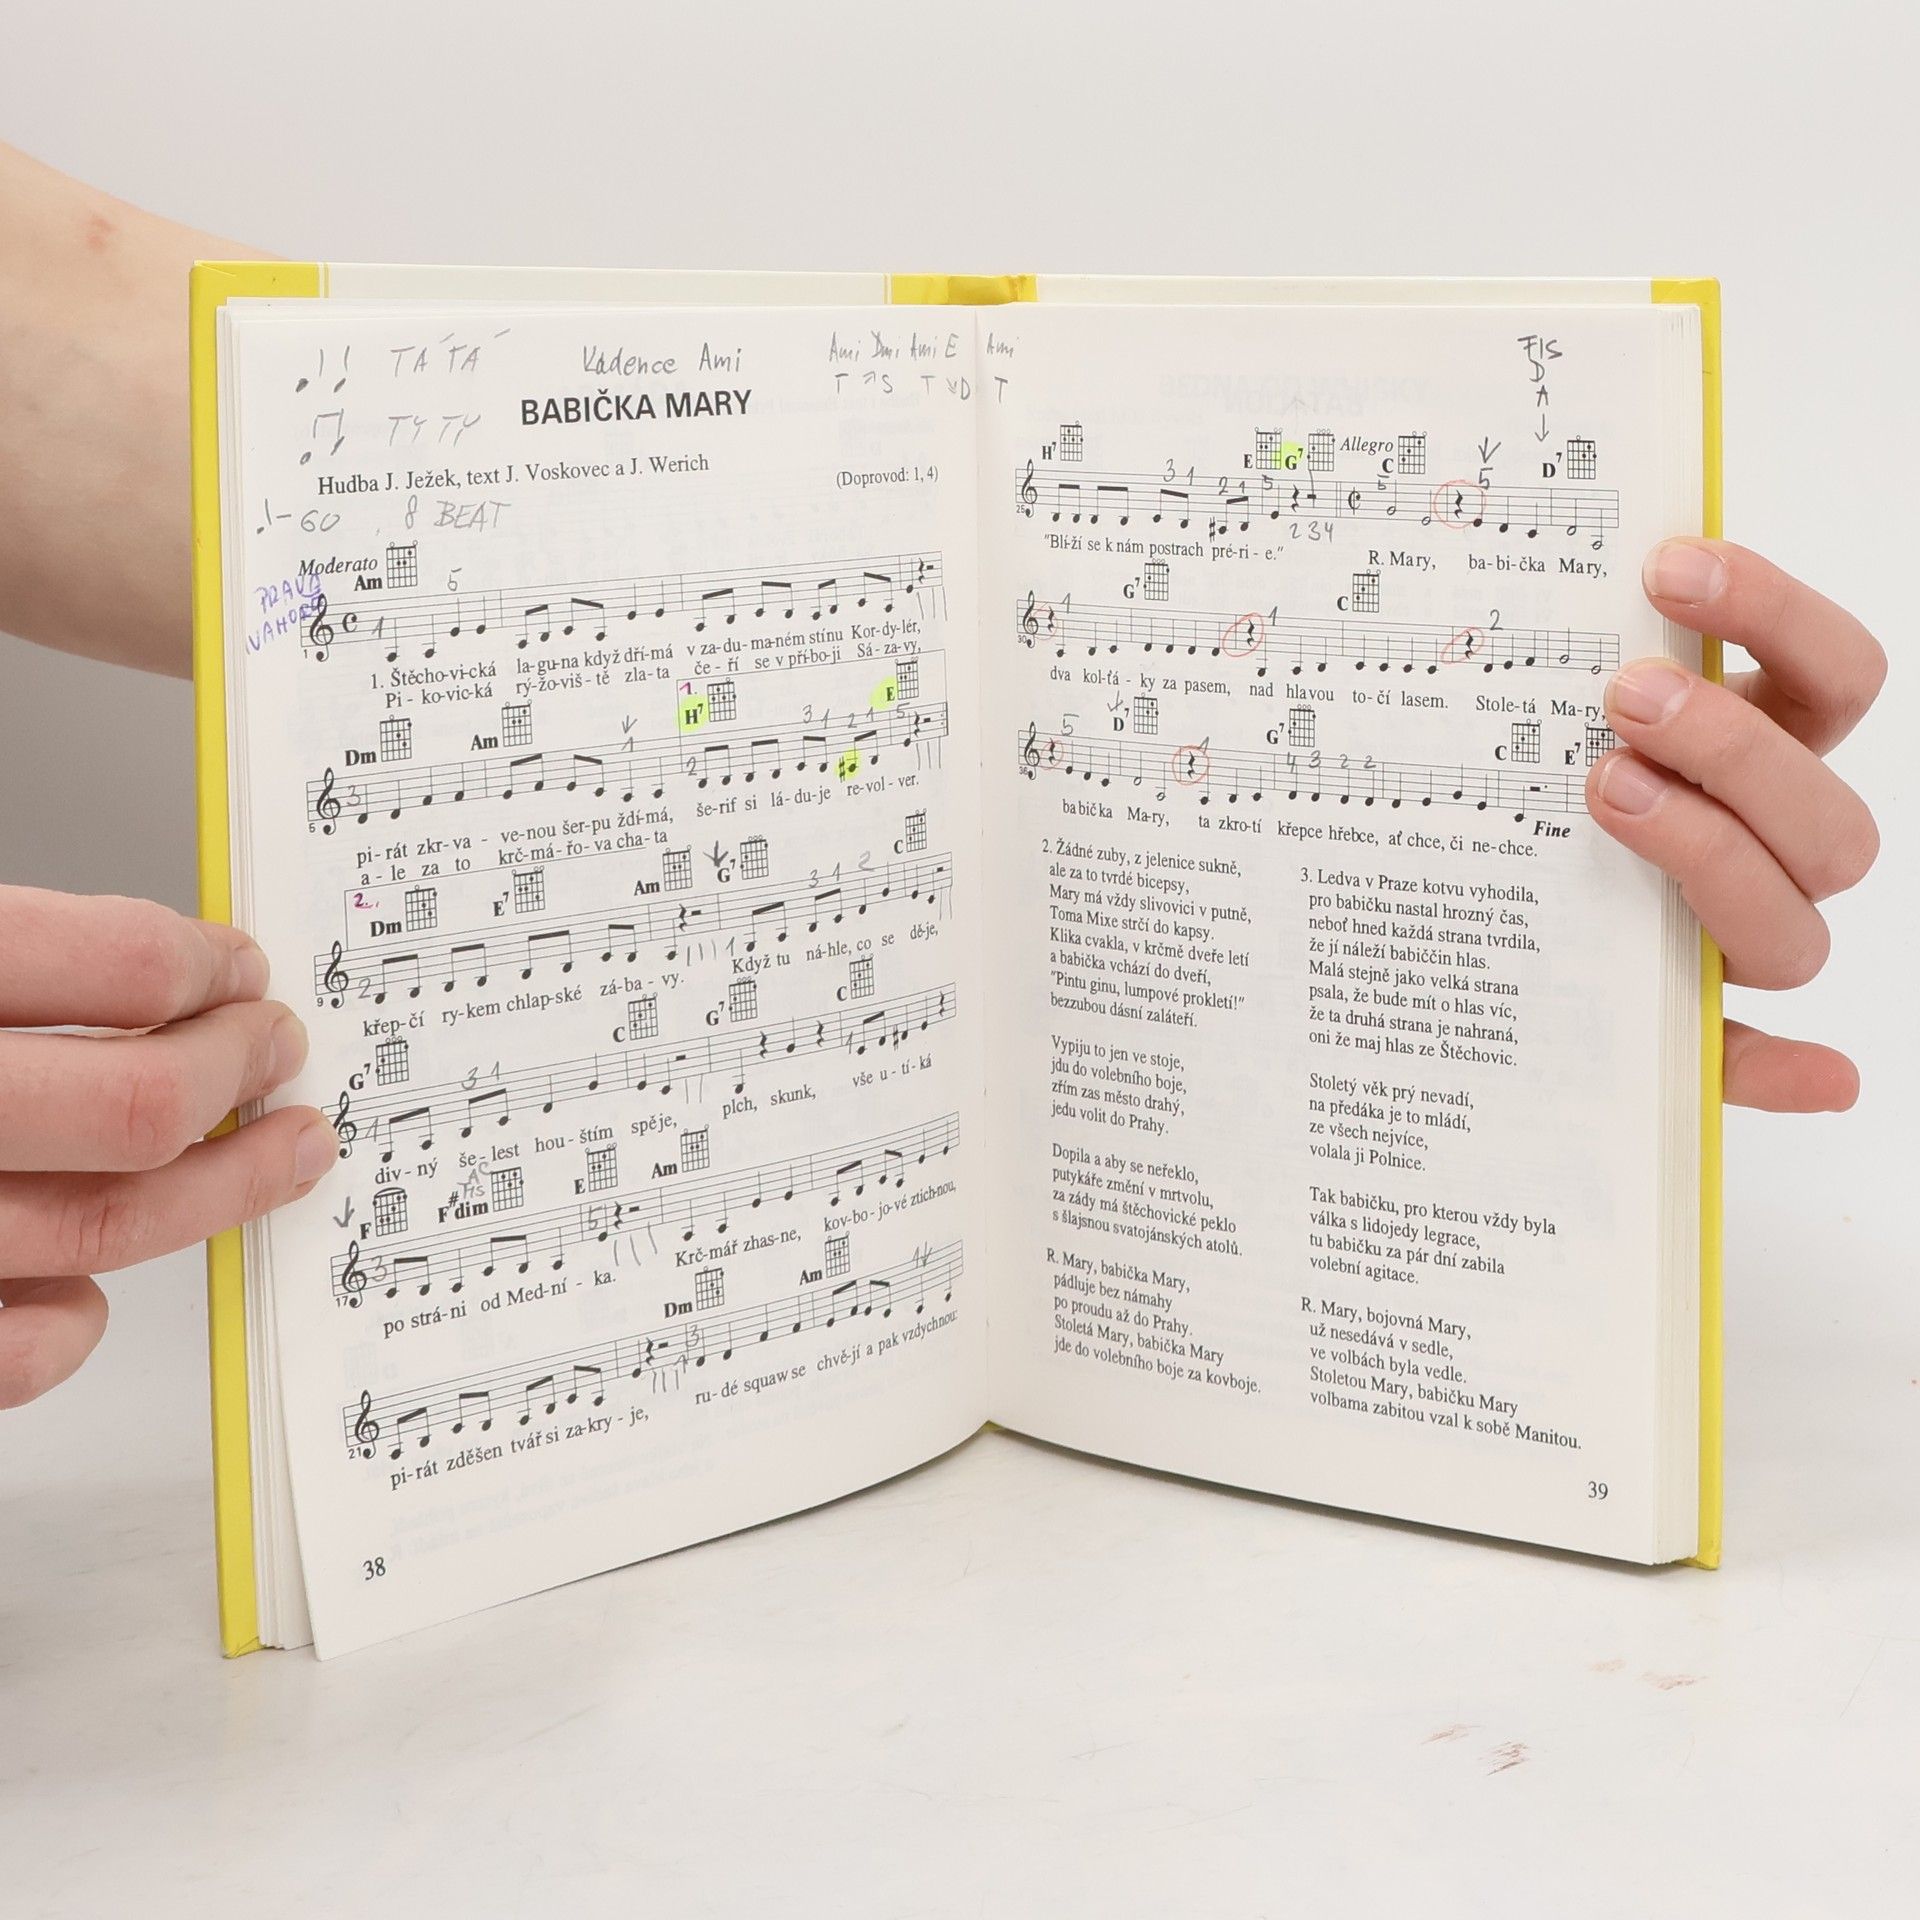 TÁ TÁ
Kadence Ami
Ami Dmi Ami E Ami
T S T D T
BABIČKA MARY
TY TY
Hudba J. Ježek, text J. Voskovec a J. Werich
(Doprovod: 1, 4)
60 8 BEAT
Moderato
PRAVÁ
NAHOŘE
Am
5
1
1. Štěcho-vi-cká la-gu-na když dří-má v za-du-ma-ném stínu Kor-dy-lér,
Pi - ko-vic-ká rý-žo-viš-tě zla-ta če - ří se v pří-bo-ji Sá-za-vy,
Dm Am 1. H7 E
3 1 3 1 2 1 5
2
5
pi-rát zkr-va - ve-nou šer-pu ždí-má, še-rif si lá-du-je re-vol-ver.
a - le za to krč-má-řo-va cha-ta
2. Dm E7 Am G7 C
2 1 3 1 2
9
křep-čí ry-kem chlap-ské zá-ba - vy. Když tu ná-hle, co se dě-je,
G7 C G7 C
1 3 1 1
div - ný še-lest hou-štím spěje, plch, skunk, vše u-tí-ká
F F#dim E Am
3 5
17
po strá-ni od Med-ní - ka. Krč-mář zhas-ne, kov-bo-jo-vé ztich-nou,
Dm Am
3 1
21
pi-rát zděšen tvář si za-kry - je, ru-dé squaw se chvě-jí a pak vzdychnou:
38
FIS
D
A
H7 E G7 Allegro C D7
3 1 2 1 5 5 5
25
2 3 4
"Blí-ží se k nám postrach pré-ri - e." R. Mary, ba-bi-čka Mary,
G7 C
1 1 2
30
dva kol-ťá - ky za pasem, nad hlavou to-čí lasem. Stole-tá Ma-ry,
D7 G7 C E7
5 1 4 3 2 2
36
babička Ma-ry, ta zkro-tí křepce hřebce, ať chce, či ne-chce.
Fine
2. Žádné zuby, z jelenice sukně,
ale za to tvrdé bicepsy,
Mary má vždy slivovici v putně,
Toma Mixe strčí do kapsy.
Klika cvakla, v krčmě dveře letí
a babička vchází do dveří,
"Pintu ginu, lumpové prokletí!"
bezzubou dásní zaláteří.
Vypiju to jen ve stoje,
jdu do volebního boje,
zřím zas město drahý,
jedu volit do Prahy.
Dopila a aby se neřeklo,
putykáře změní v mrtvolu,
za zády má štěchovické peklo
s šlajsnou svatojánských atolů.
R. Mary, babička Mary,
pádluje bez námahy
po proudu až do Prahy.
Stoletá Mary, babička Mary
jde do volebního boje za kovboje.
3. Ledva v Praze kotvu vyhodila,
pro babičku nastal hrozný čas,
neboť hned každá strana tvrdila,
že jí náleží babiččin hlas.
Malá stejně jako velká strana
psala, že bude mít o hlas víc,
že ta druhá strana je nahraná,
oni že maj hlas ze Štěchovic.
Stoletý věk prý nevadí,
na předáka je to mládí,
ze všech nejvíce,
volala ji Polnice.
Tak babičku, pro kterou vždy byla
válka s lidojedy legrace,
tu babičku za pár dní zabila
volební agitace.
R. Mary, bojovná Mary,
už nesedává v sedle,
ve volbách byla vedle.
Stoletou Mary, babičku Mary
volbama zabitou vzal k sobě Manitou.
39